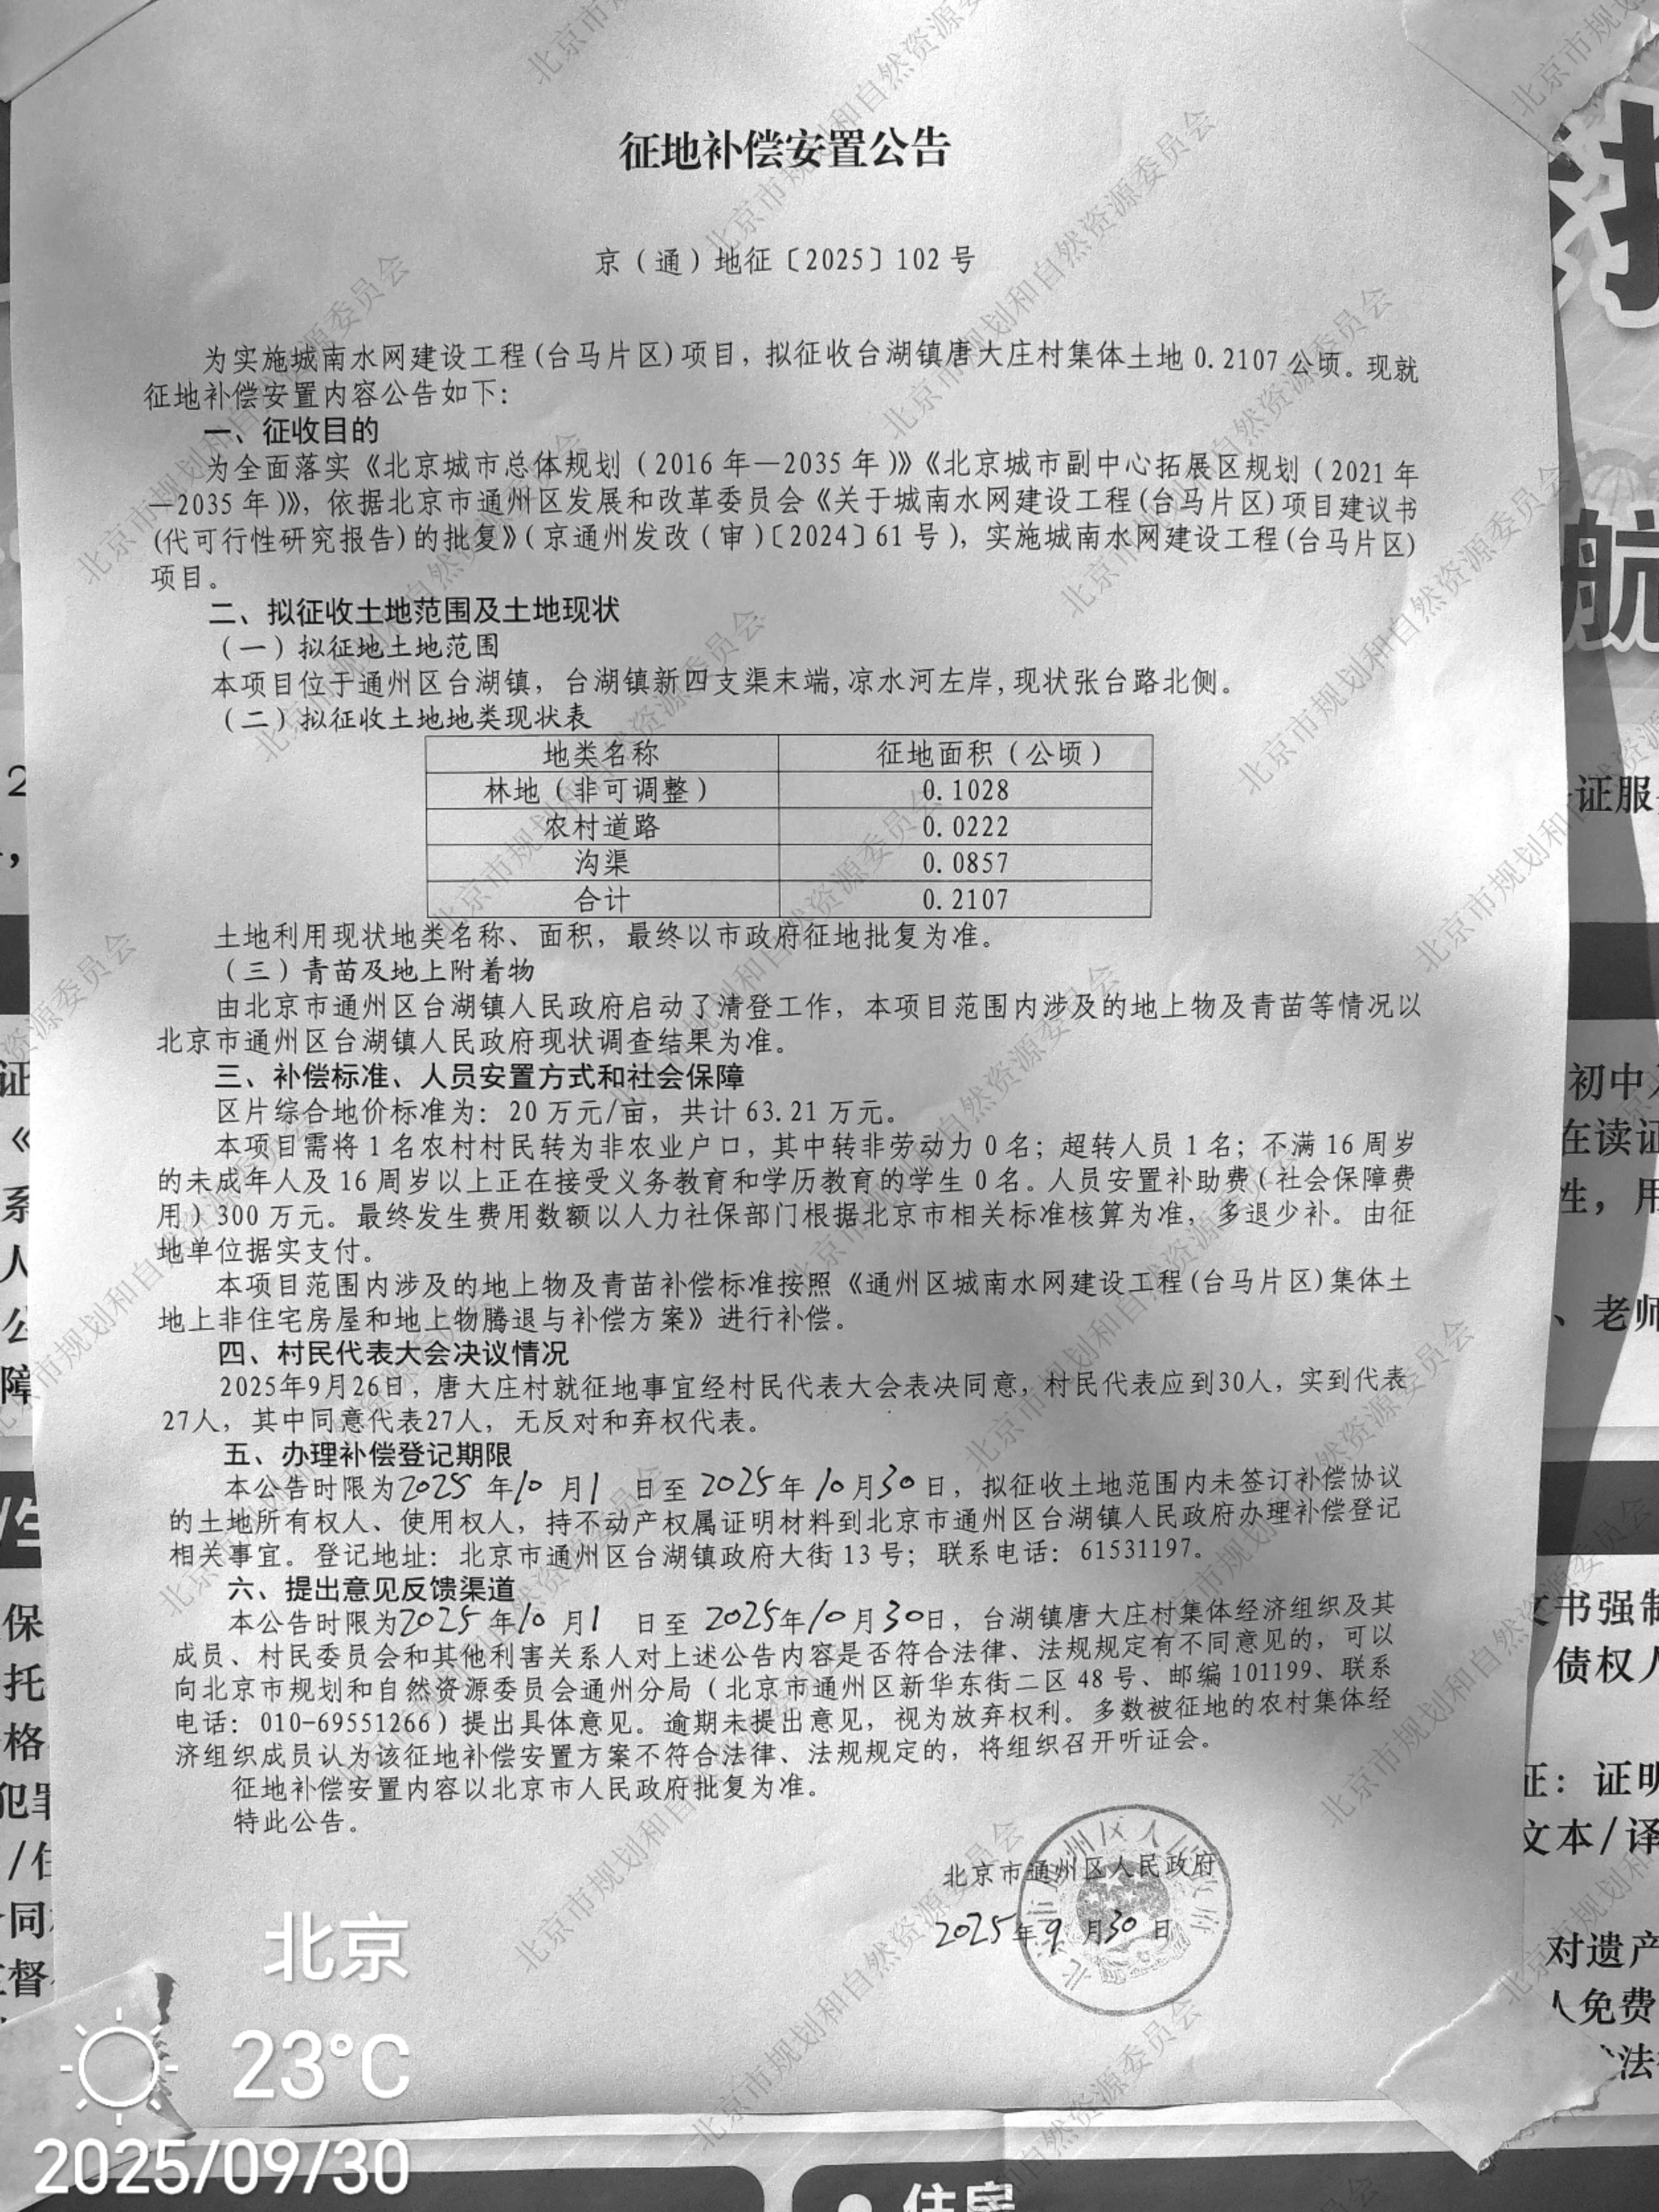 征地补偿安置公告
京（通）地征〔2025〕102号
为实施城南水网建设工程(台马片区)项目，拟征收台湖镇唐大庄村集体土地0.2107公顷。现就
征地补偿安置内容公告如下：
一、征收目的
为全面落实《北京城市总体规划（2016年—2035年）》《北京城市副中心拓展区规划（2021年
—2035年）》，依据北京市通州区发展和改革委员会《关于城南水网建设工程(台马片区)项目建议书
(代可行性研究报告)的批复》（京通州发改（审）〔2024〕61号），实施城南水网建设工程(台马片区)
项目。
二、拟征收土地范围及土地现状
（一）拟征地土地范围
本项目位于通州区台湖镇，台湖镇新四支渠末端,凉水河左岸,现状张台路北侧。
（二）拟征收土地地类现状表
地类名称 征地面积（公顷）
林地（非可调整） 0.1028
农村道路 0.0222
沟渠 0.0857
合计 0.2107
土地利用现状地类名称、面积，最终以市政府征地批复为准。
（三）青苗及地上附着物
由北京市通州区台湖镇人民政府启动了清登工作，本项目范围内涉及的地上物及青苗等情况以
北京市通州区台湖镇人民政府现状调查结果为准。
三、补偿标准、人员安置方式和社会保障
区片综合地价标准为：20万元/亩，共计63.21万元。
本项目需将1名农村村民转为非农业户口，其中转非劳动力0名；超转人员1名；不满16周岁
的未成年人及16周岁以上正在接受义务教育和学历教育的学生0名。人员安置补助费（社会保障费
用）300万元。最终发生费用数额以人力社保部门根据北京市相关标准核算为准，多退少补。由征
地单位据实支付。
本项目范围内涉及的地上物及青苗补偿标准按照《通州区城南水网建设工程(台马片区)集体土
地上非住宅房屋和地上物腾退与补偿方案》进行补偿。
四、村民代表大会决议情况
2025年9月26日，唐大庄村就征地事宜经村民代表大会表决同意，村民代表应到30人，实到代表
27人，其中同意代表27人，无反对和弃权代表。
五、办理补偿登记期限
本公告时限为2025年10月1日至2025年10月30日，拟征收土地范围内未签订补偿协议
的土地所有权人、使用权人，持不动产权属证明材料到北京市通州区台湖镇人民政府办理补偿登记
相关事宜。登记地址：北京市通州区台湖镇政府大街13号；联系电话：61531197。
六、提出意见反馈渠道
本公告时限为2025年10月1日至2025年10月30日，台湖镇唐大庄村集体经济组织及其
成员、村民委员会和其他利害关系人对上述公告内容是否符合法律、法规规定有不同意见的，可以
向北京市规划和自然资源委员会通州分局（北京市通州区新华东街二区48号、邮编101199、联系
电话：010-69551266）提出具体意见。逾期未提出意见，视为放弃权利。多数被征地的农村集体经
济组织成员认为该征地补偿安置方案不符合法律、法规规定的，将组织召开听证会。
征地补偿安置内容以北京市人民政府批复为准。
特此公告。
北京市通州区人民政府
2025年9月30日
北京
23°C
2025/09/30
北京市规划和自然资源委员会
航
证服
初中
在读证
性，用
、老师
书强制
债权人
证：证明
文本/译
对遗产
人免费
法
住房
2
证
《
系
人
公
障
保
托
格
犯罪
/住
同
督